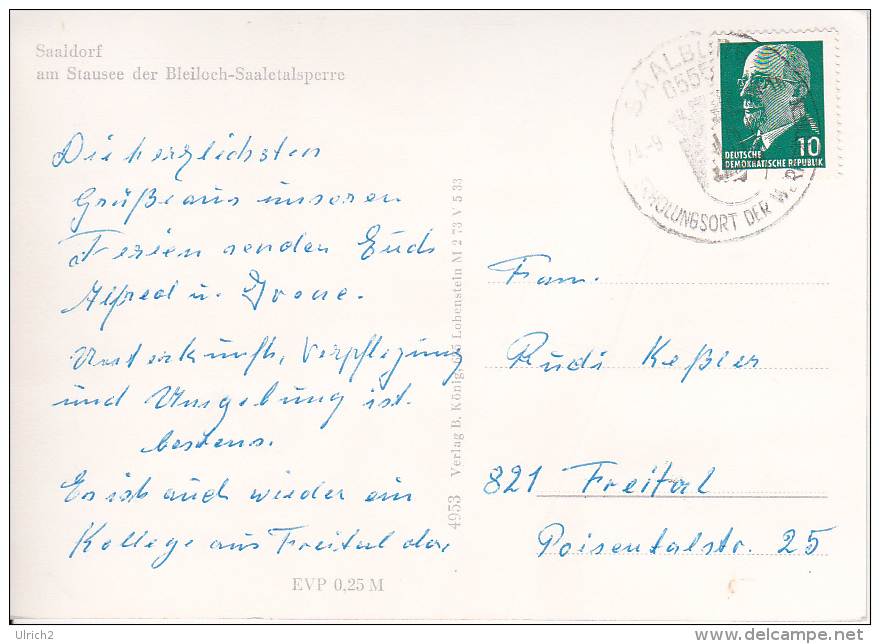 Saaldorf
am Stausee der Bleiloch-Saaletalsperre
Die herzlichsten
Grüße aus unseren
Ferien senden Euch
Alfred u.
Unterkunft, Verpflegung
und Umgebung ist
bestens.
Es ist auch wieder ein
Kollege aus Freital da.
EVP 0,25 M
4953 Verlag B. König, 685 Lobenstein M 2 73 V 5 33
SAALBURG
6555
ERHOLUNGSORT DER W
DEUTSCHE
DEMOKRATISCHE REPUBLIK
10
Fam.
Rudi Keßler
821 Freital
Poisentalstr. 25
Ulrich2
www.delcampe.net